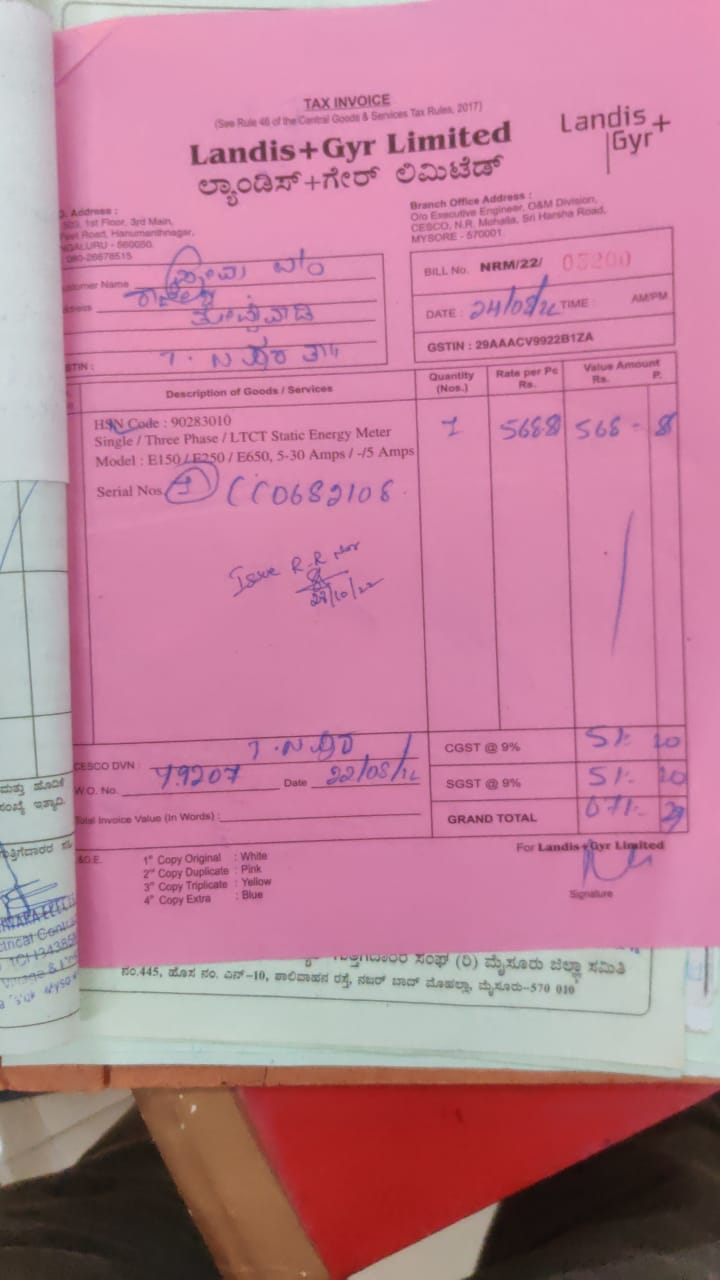 TAX INVOICE
(See Rule 46 of the Central Goods & Services Tax Rules, 2017)
Landis+Gyr Limited
ಲ್ಯಾಂಡಿಸ್+ಗೇರ್ ಲಿಮಿಟೆಡ್
Landis
Gyr+
Address :
1st Floor, 3rd Main,
Road, Hanumanthnagar,
080-26678515
Branch Office Address :
O/o Executive Engineer, O&M Division,
CESCO, N.R. Mohalla, Sri Harsha Road,
MYSORE - 570001
Name
BILL No. NRM/22/ 05200
DATE : 24/08/22 TIME : AM/PM
GSTIN : 29AAACV9922B1ZA
Description of Goods / Services
Quantity (Nos.)
Rate per Pc Rs.
Value Amount Rs. P.
HSN Code : 90283010
Single / Three Phase / LTCT Static Energy Meter
Model : E150 / E250 / E650, 5-30 Amps / -/5 Amps
1 568.8 568 - 8
Serial Nos. 1 CC0682108
Issue R.R
28/10/22
CESCO DVN :
W.O. No. 49207 Date 22/08/22
Total Invoice Value (In Words) :
CGST @ 9% 51 20
SGST @ 9% 51 20
GRAND TOTAL 671 29
1st Copy Original : White
2nd Copy Duplicate : Pink
3rd Copy Triplicate : Yellow
4th Copy Extra : Blue
For Landis+Gyr Limited
Signature
ಸಂಘ (ರಿ) ಮೈಸೂರು ಜಿಲ್ಲಾ ಸಮಿತಿ
ನಂ.445, ಹೊಸ ನಂ. ಎನ್-10, ಶಾಲಿವಾಹನ ರಸ್ತೆ, ನಜರ್ ಬಾದ್ ಮೊಹಲ್ಲಾ, ಮೈಸೂರು-570 010